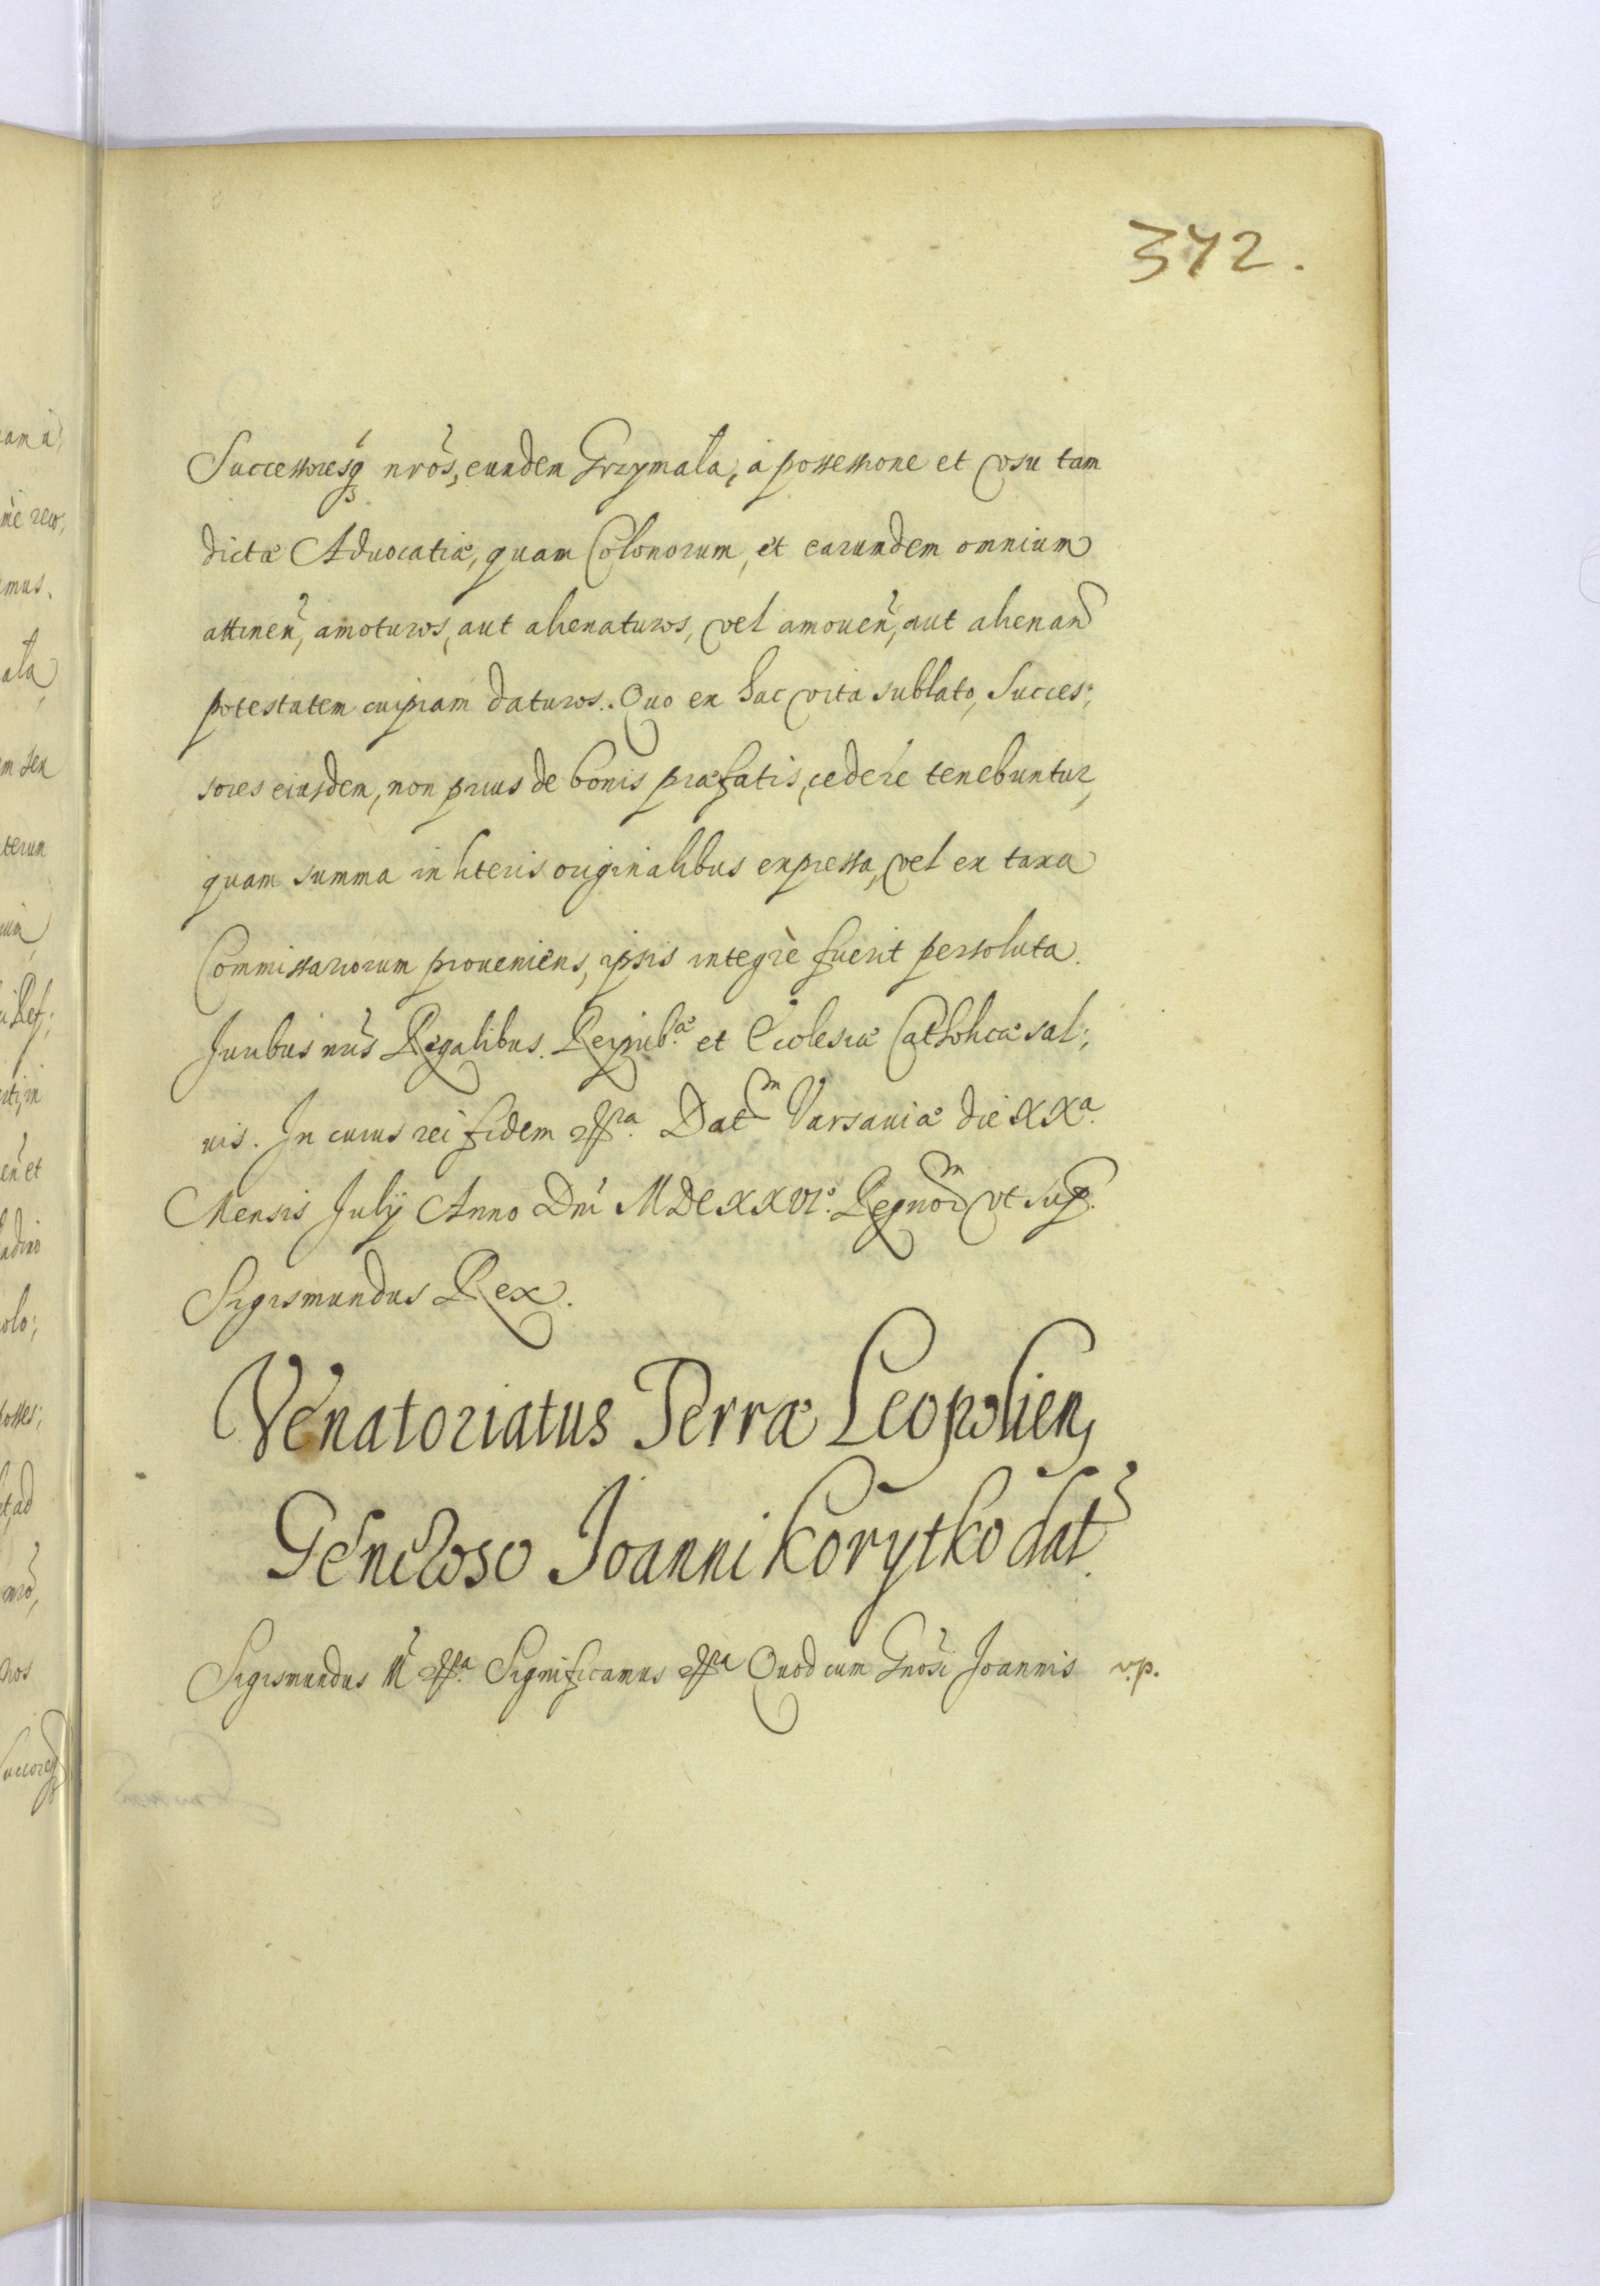 342.
Successoresq3 nrõs, eundem Grzymala, à possessione et vsu tam
dictæ Aduocatiæ, quam Colonorum, et earundem omnium
attinen, amoturos, aut alienaturos, vel amouen, aut alienand
potestatem cuipiam daturos. Quo ex hac vita sublato, Succes;
sores eiusdem, non prius de bonis præfatis, cedere tenebuntur,
quam summa in literis originalibus expressa, vel ex taxa
Commissariorum proueniens, ipsis integrè fuerit persoluta.
Juribus nris Regalibus. Reipub.æ et Ecclesiæ Catholicæ sal;
uis. In cuius rei fidem etc.ra Datm Varsauiæ die XXa.
Mensis July Anno Dni MDCXXVIo. Regnorm vt sup.
Sigismundus Rex.
Venatoriatus Terræ Leopolien,
Generoso Joanni Korytko dat.
Sigismundus III etc.ra Significamus etc.ra Quod cum Gnosi Joannis v.p.